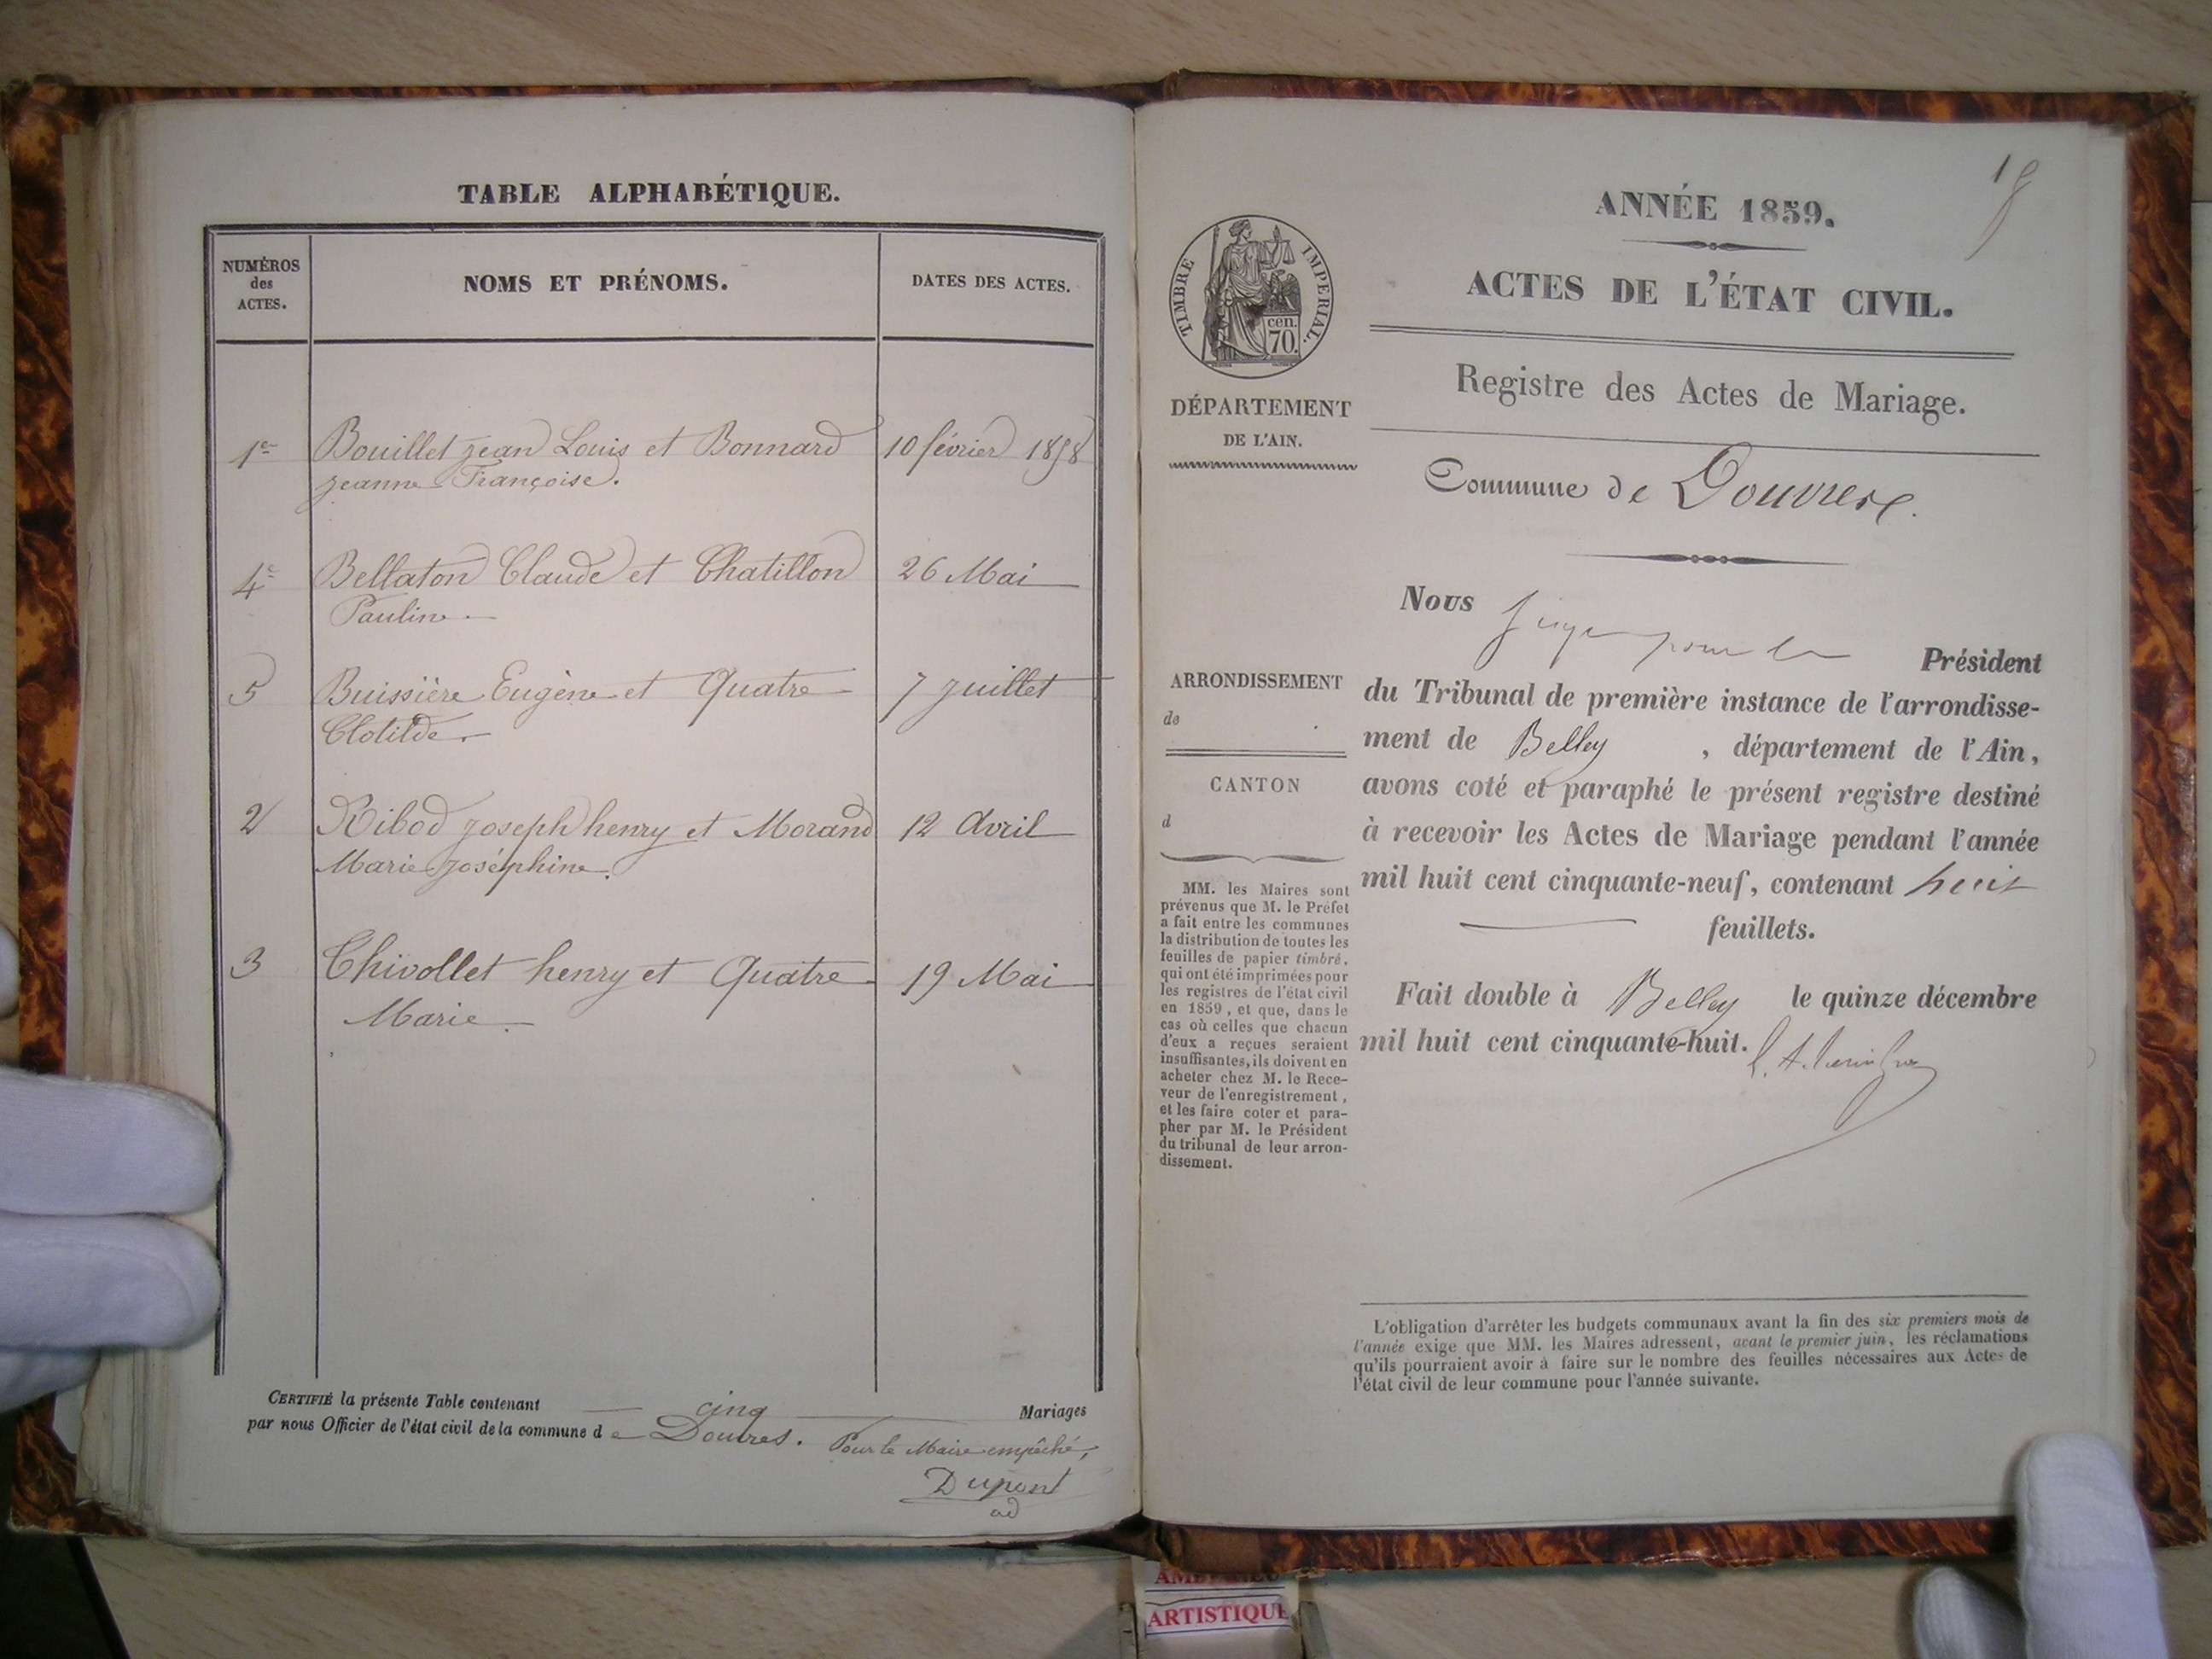 TABLE ALPHABÉTIQUE.
NUMÉROS
des
ACTES.
NOMS ET PRÉNOMS.
DATES DES ACTES.
1er Bouillet Jean Louis et Bonnard 10 février 1858
Jeanne Françoise.
4e Bellaton Claude et Chatillon 26 Mai
Pauline
5 Buissière Eugène et Quatre 7 Juillet
Clotilde.
2 Ribod Joseph henry et Morand 12 Avril
Marie Joséphine.
3 Chivollet henry et Quatre 19 Mai
Marie.
CERTIFIÉ la présente Table contenant cinq Mariages
par nous Officier de l'état civil de la commune de Douvres. Pour le Maire empêché,
Dupont
ad
19
TIMBRE IMPERIAL.
cen.
70.
DÉPARTEMENT
DE L'AIN.
ARRONDISSEMENT
de
CANTON
d
MM. les Maires sont
prévenus que M. le Préfet
a fait entre les communes
la distribution de toutes les
feuilles de papier timbré,
qui ont été imprimées pour
les registres de l'état civil
en 1859, et que, dans le
cas où celles que chacun
d'eux a reçues seraient
insuffisantes, ils doivent en
acheter chez M. le Rece-
veur de l'enregistrement,
et les faire coter et para-
pher par M. le Président
du tribunal de leur arron-
dissement.
ANNÉE 1859.
ACTES DE L'ÉTAT CIVIL.
Registre des Actes de Mariage.
Commune de Douvres.
Nous Juge pour le Président
du Tribunal de première instance de l'arrondisse-
ment de Belley, département de l'Ain,
avons coté et paraphé le présent registre destiné
à recevoir les Actes de Mariage pendant l'année
mil huit cent cinquante-neuf, contenant huit
feuillets.
Fait double à Belley le quinze décembre
mil huit cent cinquante-huit.
L'obligation d'arrêter les budgets communaux avant la fin des six premiers mois de
l'année exige que MM. les Maires adressent, avant le premier juin, les réclamations
qu'ils pourraient avoir à faire sur le nombre des feuilles nécessaires aux Actes de
l'état civil de leur commune pour l'année suivante.
ARTISTIQUE